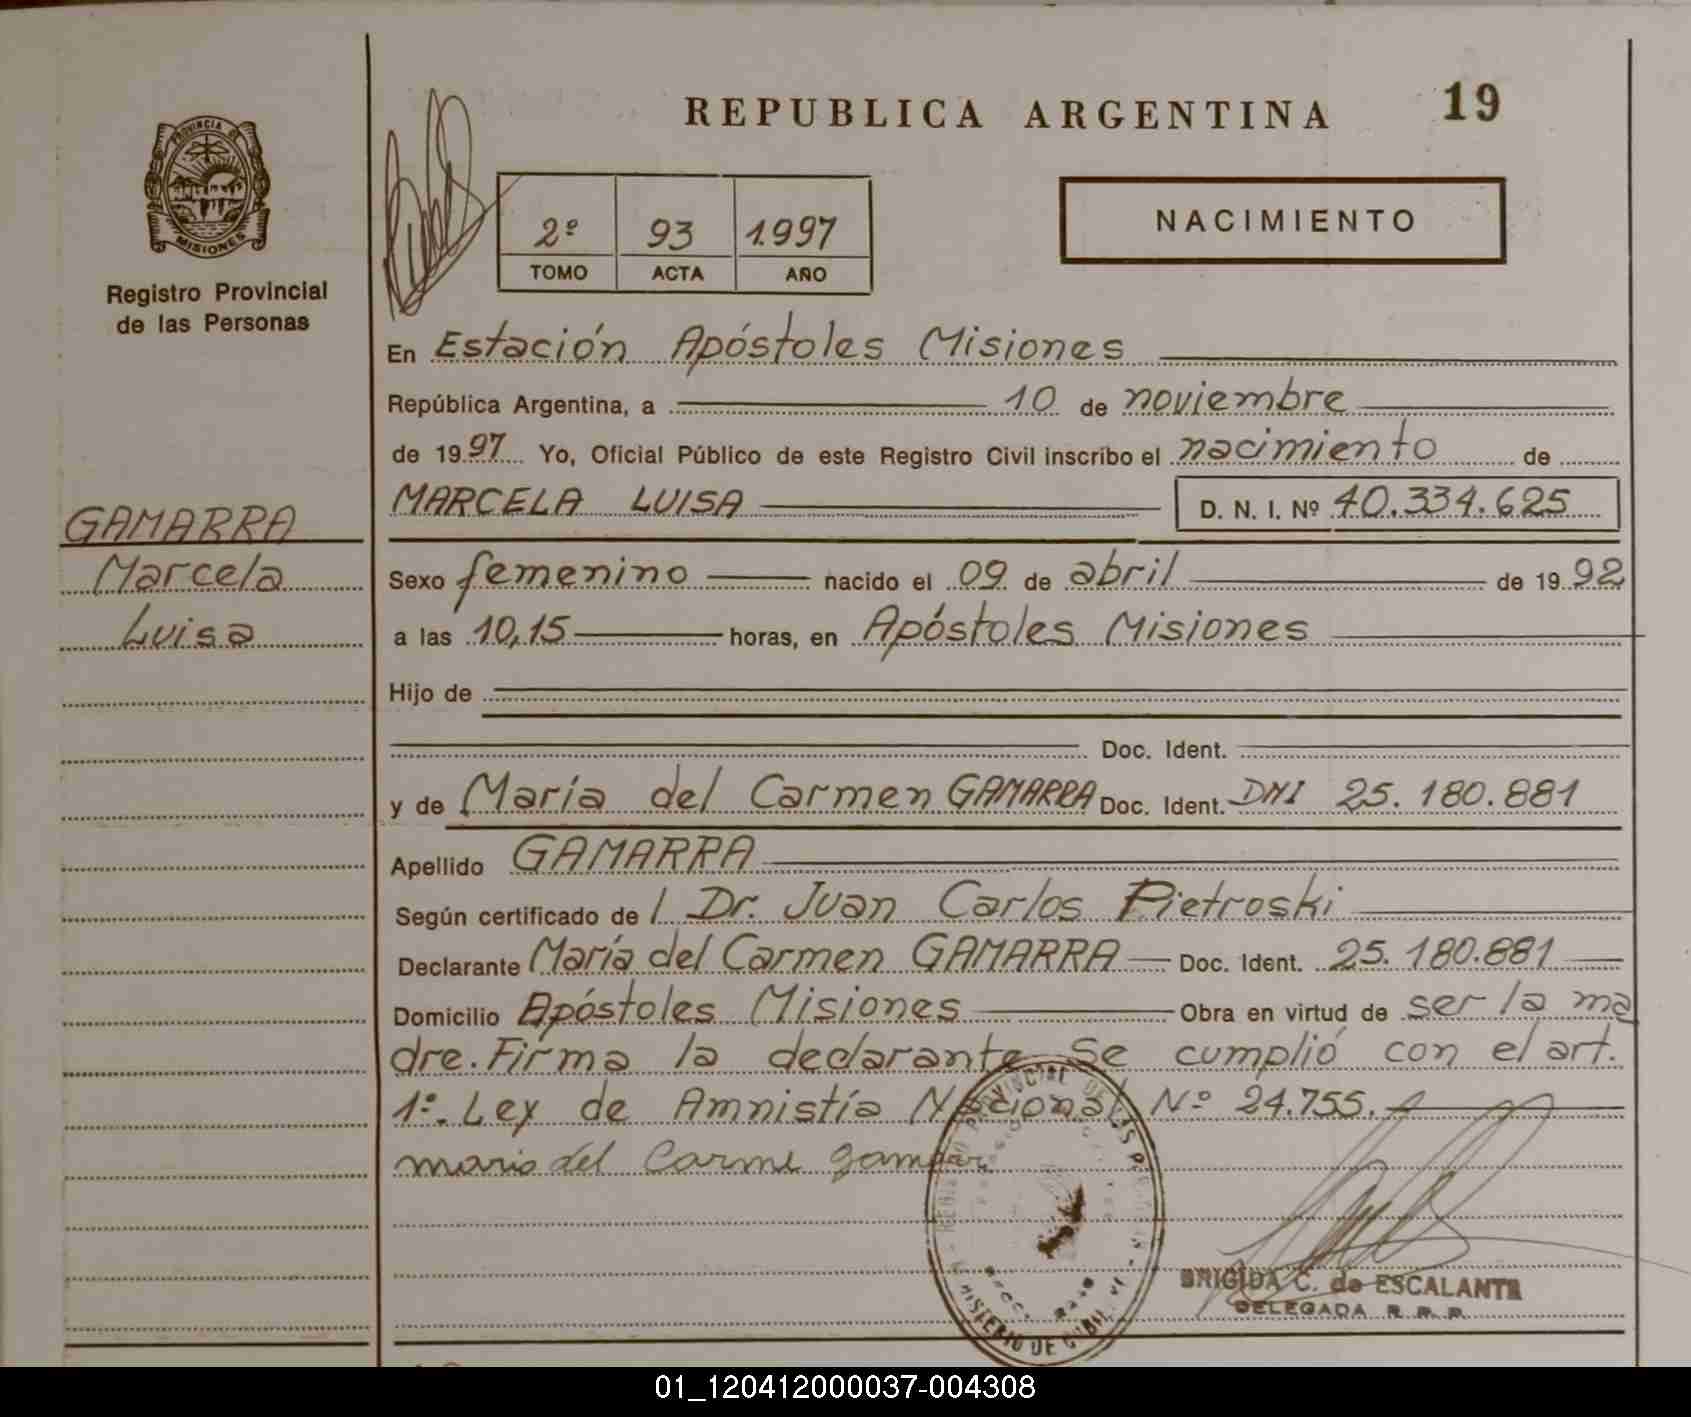 REPUBLICA ARGENTINA
19
PROVINCIA DE
MISIONES
Registro Provincial
de las Personas
2º 93 1.997
TOMO ACTA AÑO
NACIMIENTO
En Estación Apóstoles Misiones
República Argentina, a 10 de noviembre
de 1997 Yo, Oficial Público de este Registro Civil inscribo el nacimiento de
MARCELA LUISA D. N. I. Nº 40.334.625
GAMARRA
Marcela
Luisa
Sexo femenino nacido el 09 de abril de 1992
a las 10,15 horas, en Apóstoles Misiones
Hijo de
Doc. Ident.
y de María del Carmen GAMARRA Doc. Ident. DNI 25.180.881
Apellido GAMARRA
Según certificado de Dr. Juan Carlos Pietroski
Declarante María del Carmen GAMARRA Doc. Ident. 25.180.881
Domicilio Apóstoles Misiones Obra en virtud de ser la ma
dre. Firma la declarante Se cumplió con el art.
1º. Ley de Amnistía Nacional Nº 24.755.
maria del Carme gamarr
BRIGIDA C. de ESCALANTE
DELEGADA R. P. P.
01_120412000037-004308